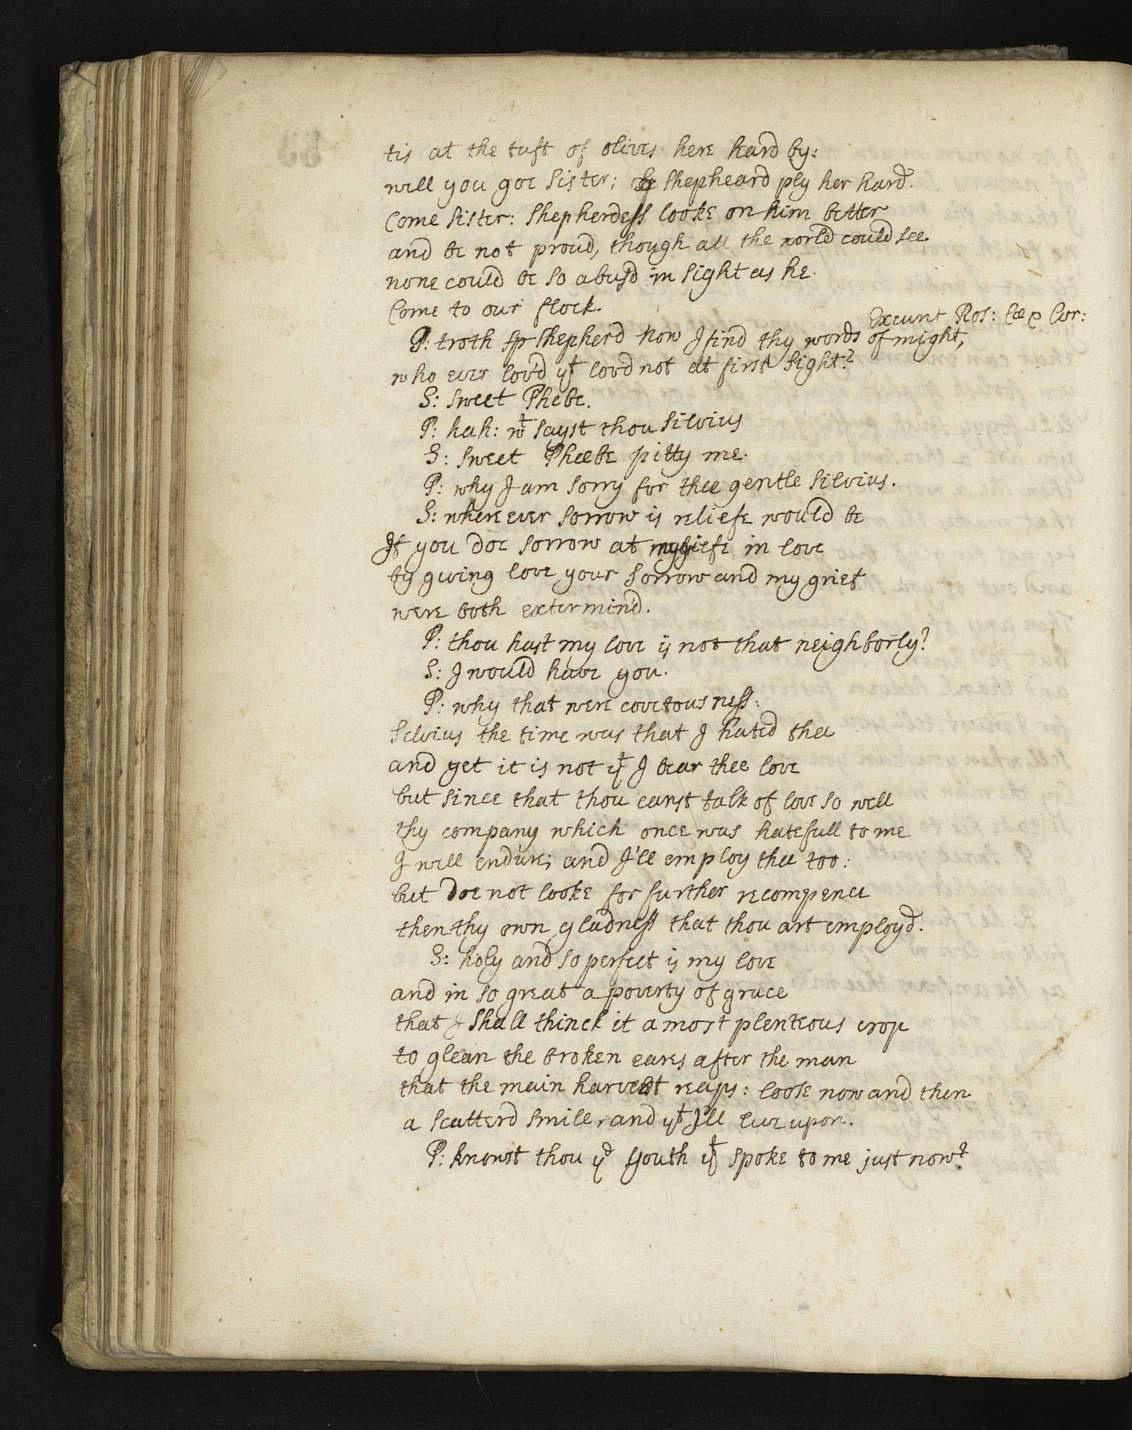 tis at the tuft of olives here hard by:
will you goe sister; Shepheard ply her hard.
Come sister: shepherdess looke on him better
and be not proud, though all the world could see.
none could be so abusd in sight as he.
Come to our flock.
Exeunt Ros: Cæ & Cor:
P: troth shepherd now I find thy words of might,
who ever lov'd yt lov'd not at first sight?
S: sweet Phebe.
P: hah: wt sayst thou Silvius
S: sweet Phebe pitty me.
P: why I am sorry for thee gentle Silvius.
S: where ever sorrow is reliefe would be
If you doe sorrow at my griefe in love
by giving love your sorrow and my grief
were both extermin'd.
P: thou hast my love is not that neighborly?
S: I would have you.
P: why that were covetousness:
Silvius the time was that I hated thee
and yet it is not yt I bear thee love
but since that thou canst talk of love so well
thy company which once was hatefull to me
I will endure; and I'll employ thee too:
but doe not looke for further recompence
then thy own gladness that thou art employd.
S: holy and so perfect is my love
and in so great a poverty of grace
that I shall thinck it a most plenteous crop
to glean the broken eares after the man
that the main harvest reaps: loose now and then
a scatterd smile, and yt I'll live upon.
P: knowst thou ye youth yt spoke to me just now?